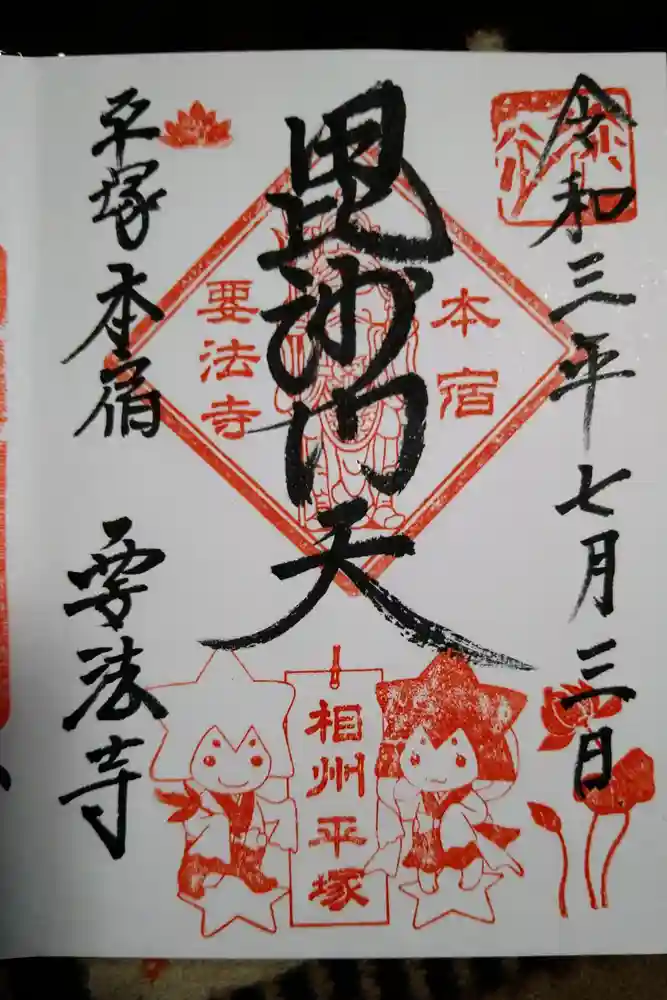 令和三年七月三日
毘沙門天
本宿
要法寺
相州平塚
平塚本宿 要法寺